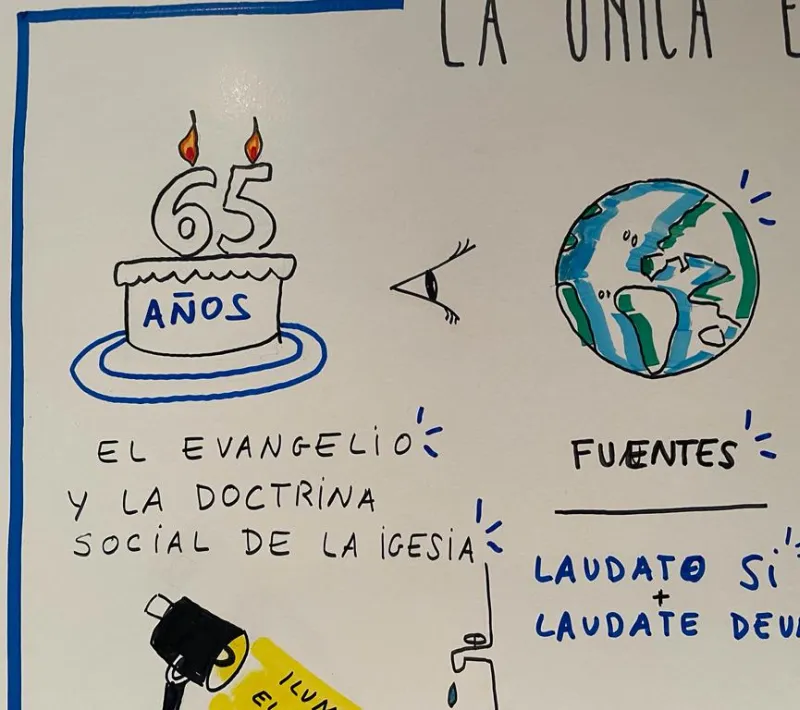 LA ÚNICA
65
AÑOS
EL EVANGELIO
Y LA DOCTRINA
SOCIAL DE LA IGESIA
FUENTES
LAUDATO Si
+
LAUDATE